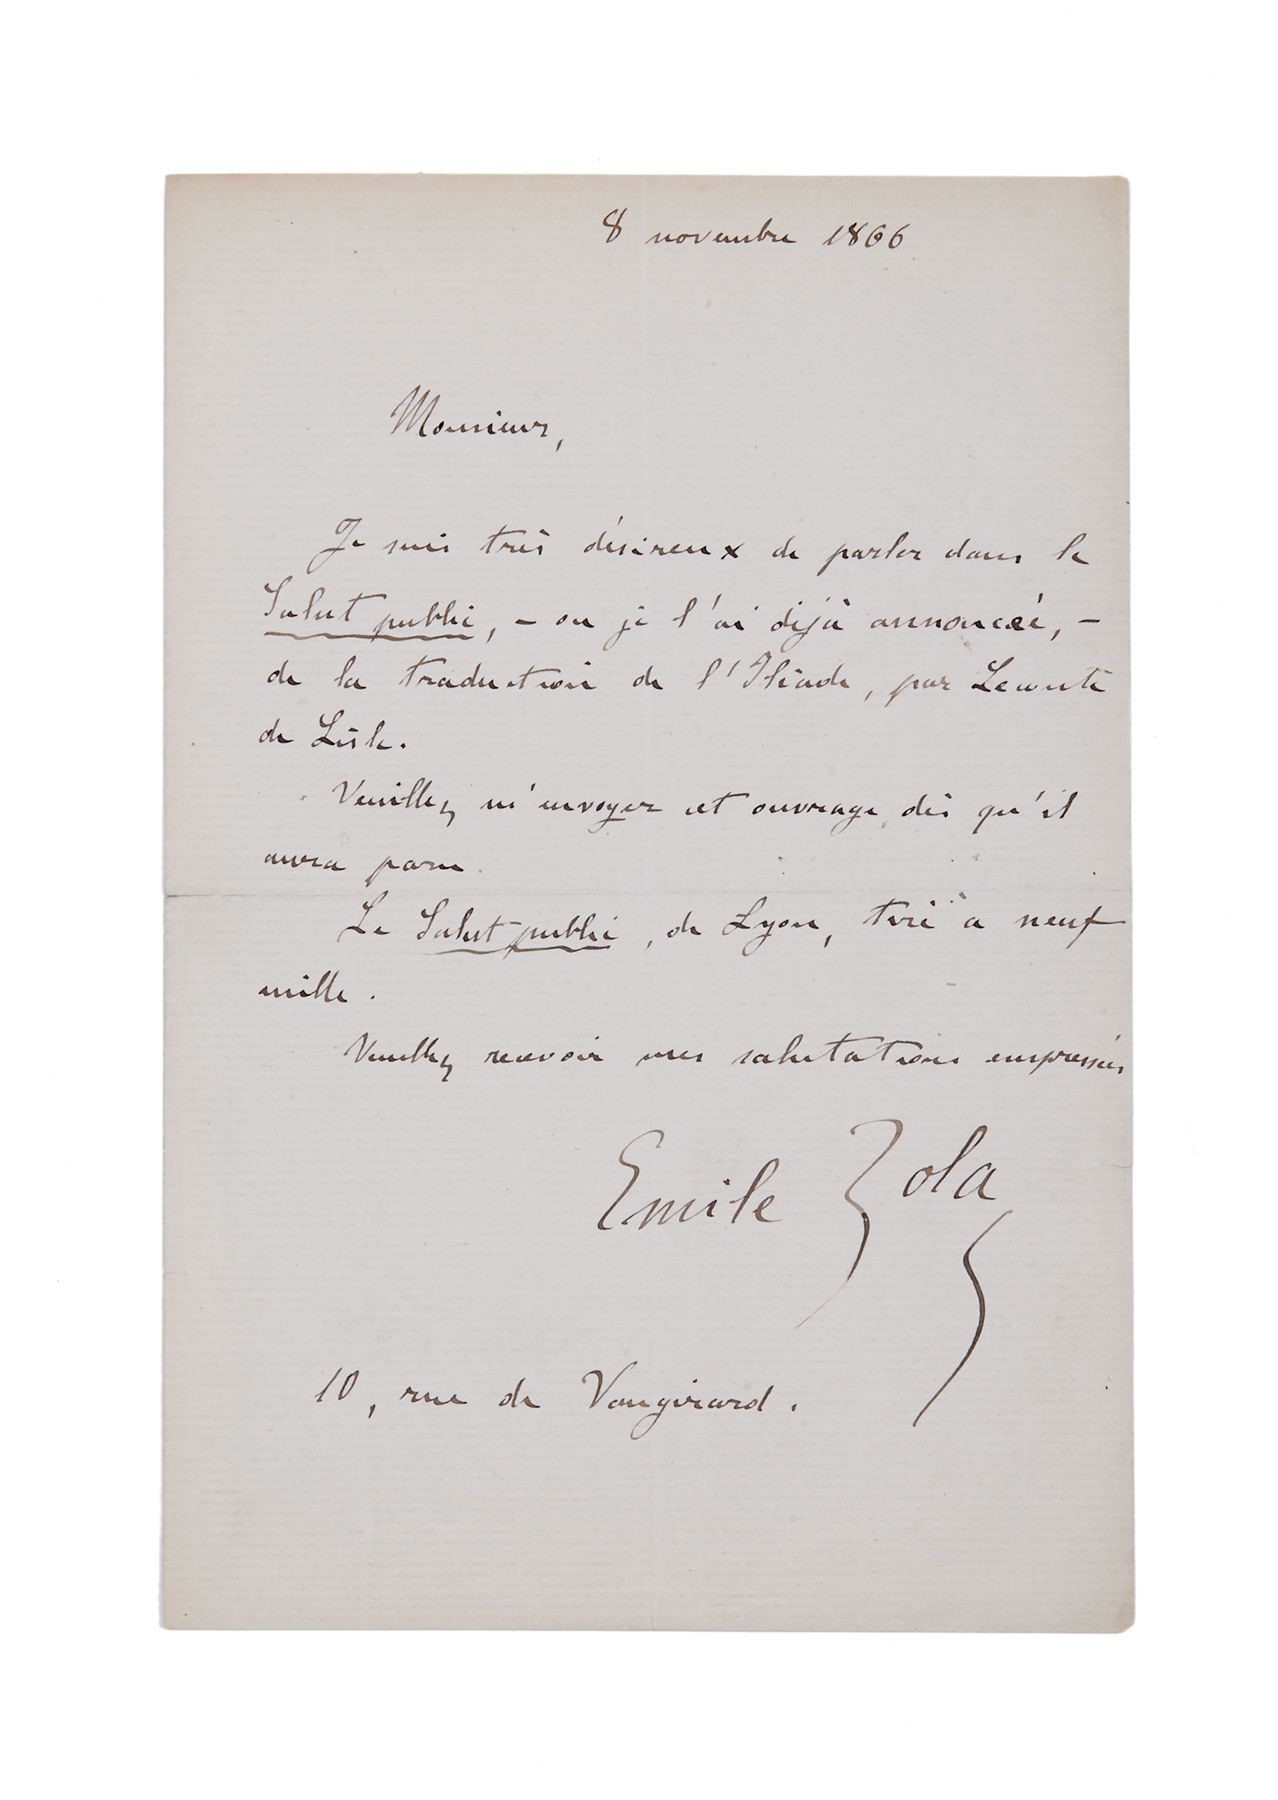 8 novembre 1866
Monsieur,
Je suis très désireux de parler dans le
Salut public, – ou je l'ai déjà annoncée, –
de la traduction de l'Iliade, par Leconte
de Lisle.
Veuillez m'envoyer cet ouvrage, dès qu'il
aura paru.
Le Salut public, de Lyon, tire à neuf
mille.
Veuillez recevoir mes salutations empressées
Emile Zola
10, rue de Vaugirard.